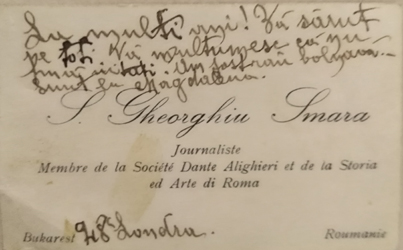 La mulți ani! Vă sărut
pe toți. Vă mulțumesc că nu
mă uitați. bolnavă.
Sunt eu Magdalena.
S. Gheorghiu Smara
Journaliste
Membre de la Société Dante Alighieri et de la Storia
ed Arte di Roma
Bukarest 48 Londra. Roumanie